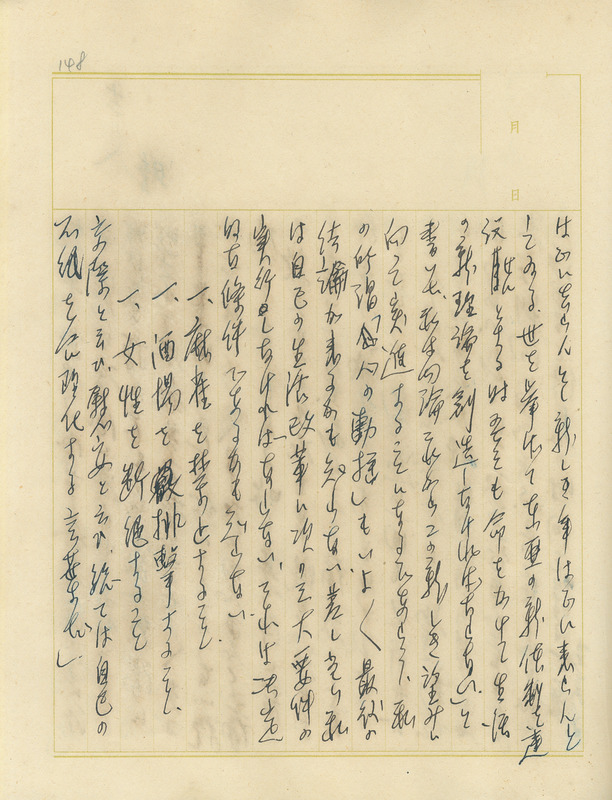 148
月
日
は正に去らんとし新しき年は正に来らんと
してゐる。世を挙げて東亜の新体制を建
設
とする時吾々も命をかけて生活
の新理論を創造しなければならない」と
書いた、私は勿論これからこの新しき望みに
向って突進することになるであらう、私
の所謂「心の動揺」もいよ〱最後の
結論が来るかも知れない、差し当り私
は自己の生活改革に次の三大要件の
実行しなければならない、それは決定
的な条件であるかも知れない
一、麻雀を禁止すること、
一、酒場を排撃すること、
一、女性を断絶すること
交際と云ひ慰安と云ひ、総ては自己の
不純を合理化する言葉だ